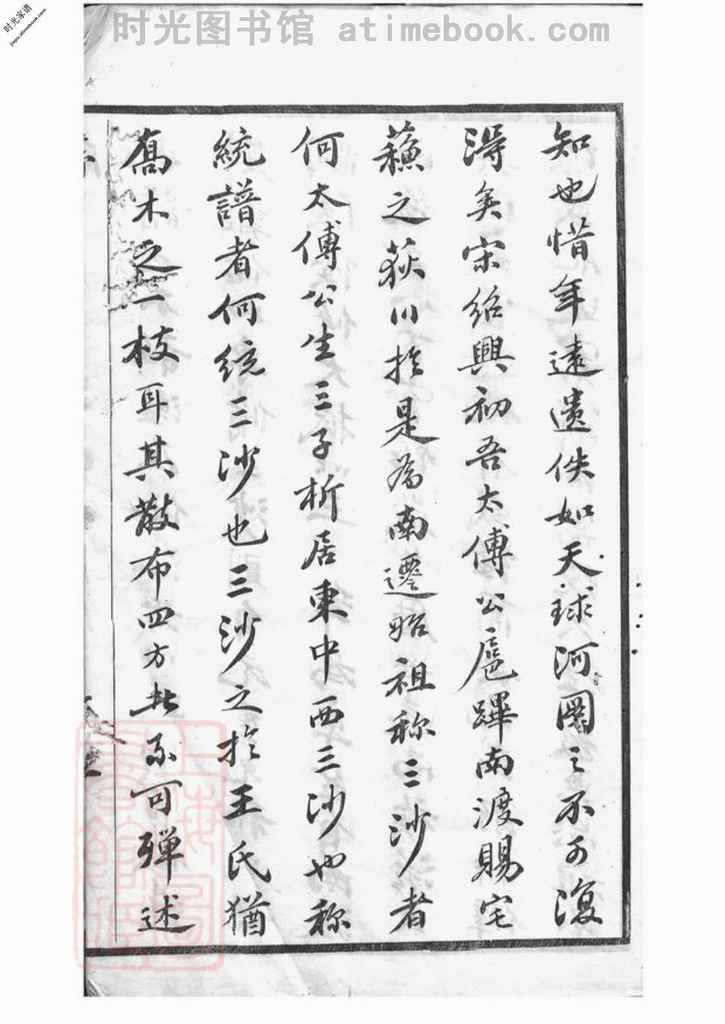 时光图书馆 atimebook.com
时光家谱
知也惜年遠遺佚如天球河圖之不可復
得矣宋紹興初吾太傅公扈蹕南渡賜宅
蘓之荻川扵是為南遷始祖称三沙者
何太傅公生三子析居東中西三沙也称
統譜者何统三沙也三沙之扵王氏猶
喬木之一枝耳其散布四方者不可殫述